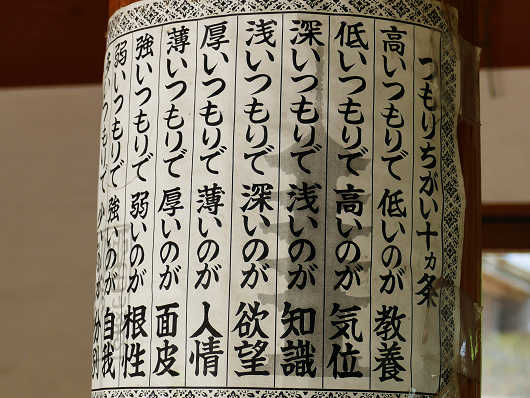 つもりちがい十ヵ条
高いつもりで低いのが教養
低いつもりで高いのが気位
深いつもりで浅いのが知識
浅いつもりで深いのが欲望
厚いつもりで薄いのが人情
薄いつもりで厚いのが面皮
強いつもりで弱いのが根性
弱いつもりで強いのが自我